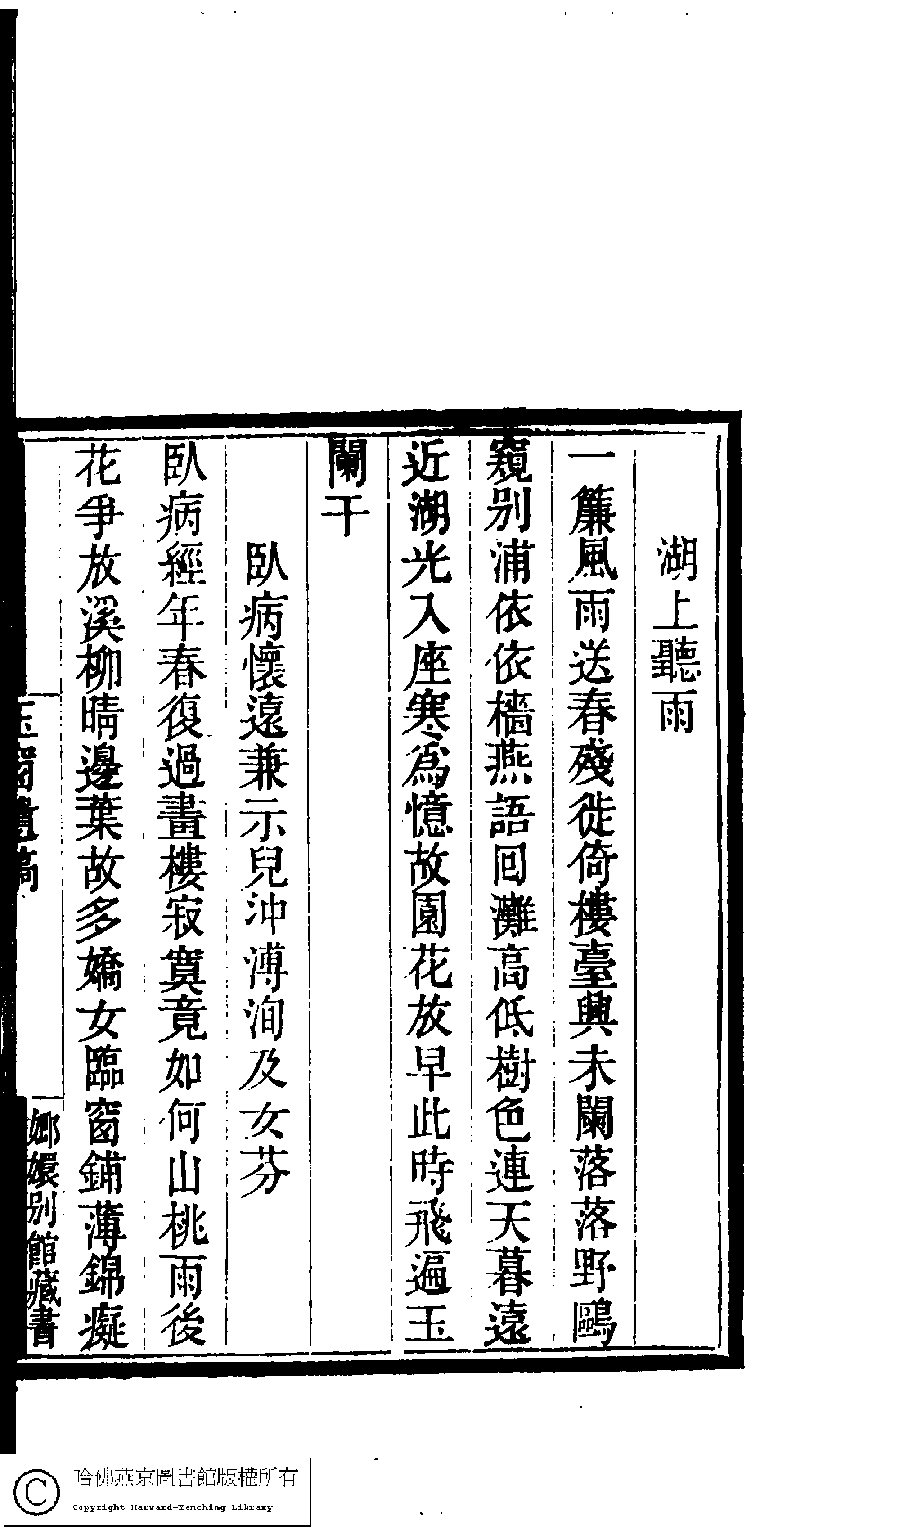 湖上聽雨
一簾風雨送春殘徙倚樓臺興未闌落落野鷗
窺別浦依依檣燕語回灘高低樹色連天暮遠
近湖光入座寒爲憶故園花放早此時飛遍玉
闌干
臥病懷遠兼示兒沖溥洵及女芬
臥病經年春復過畫樓寂寞竟如何山桃雨後
花爭放溪柳晴邊葉故多嬌女臨窗鋪薄錦癡
嫏嬛別館藏書
哈佛燕京圖書館版權所有
Copyright Harvard-Yenching Library